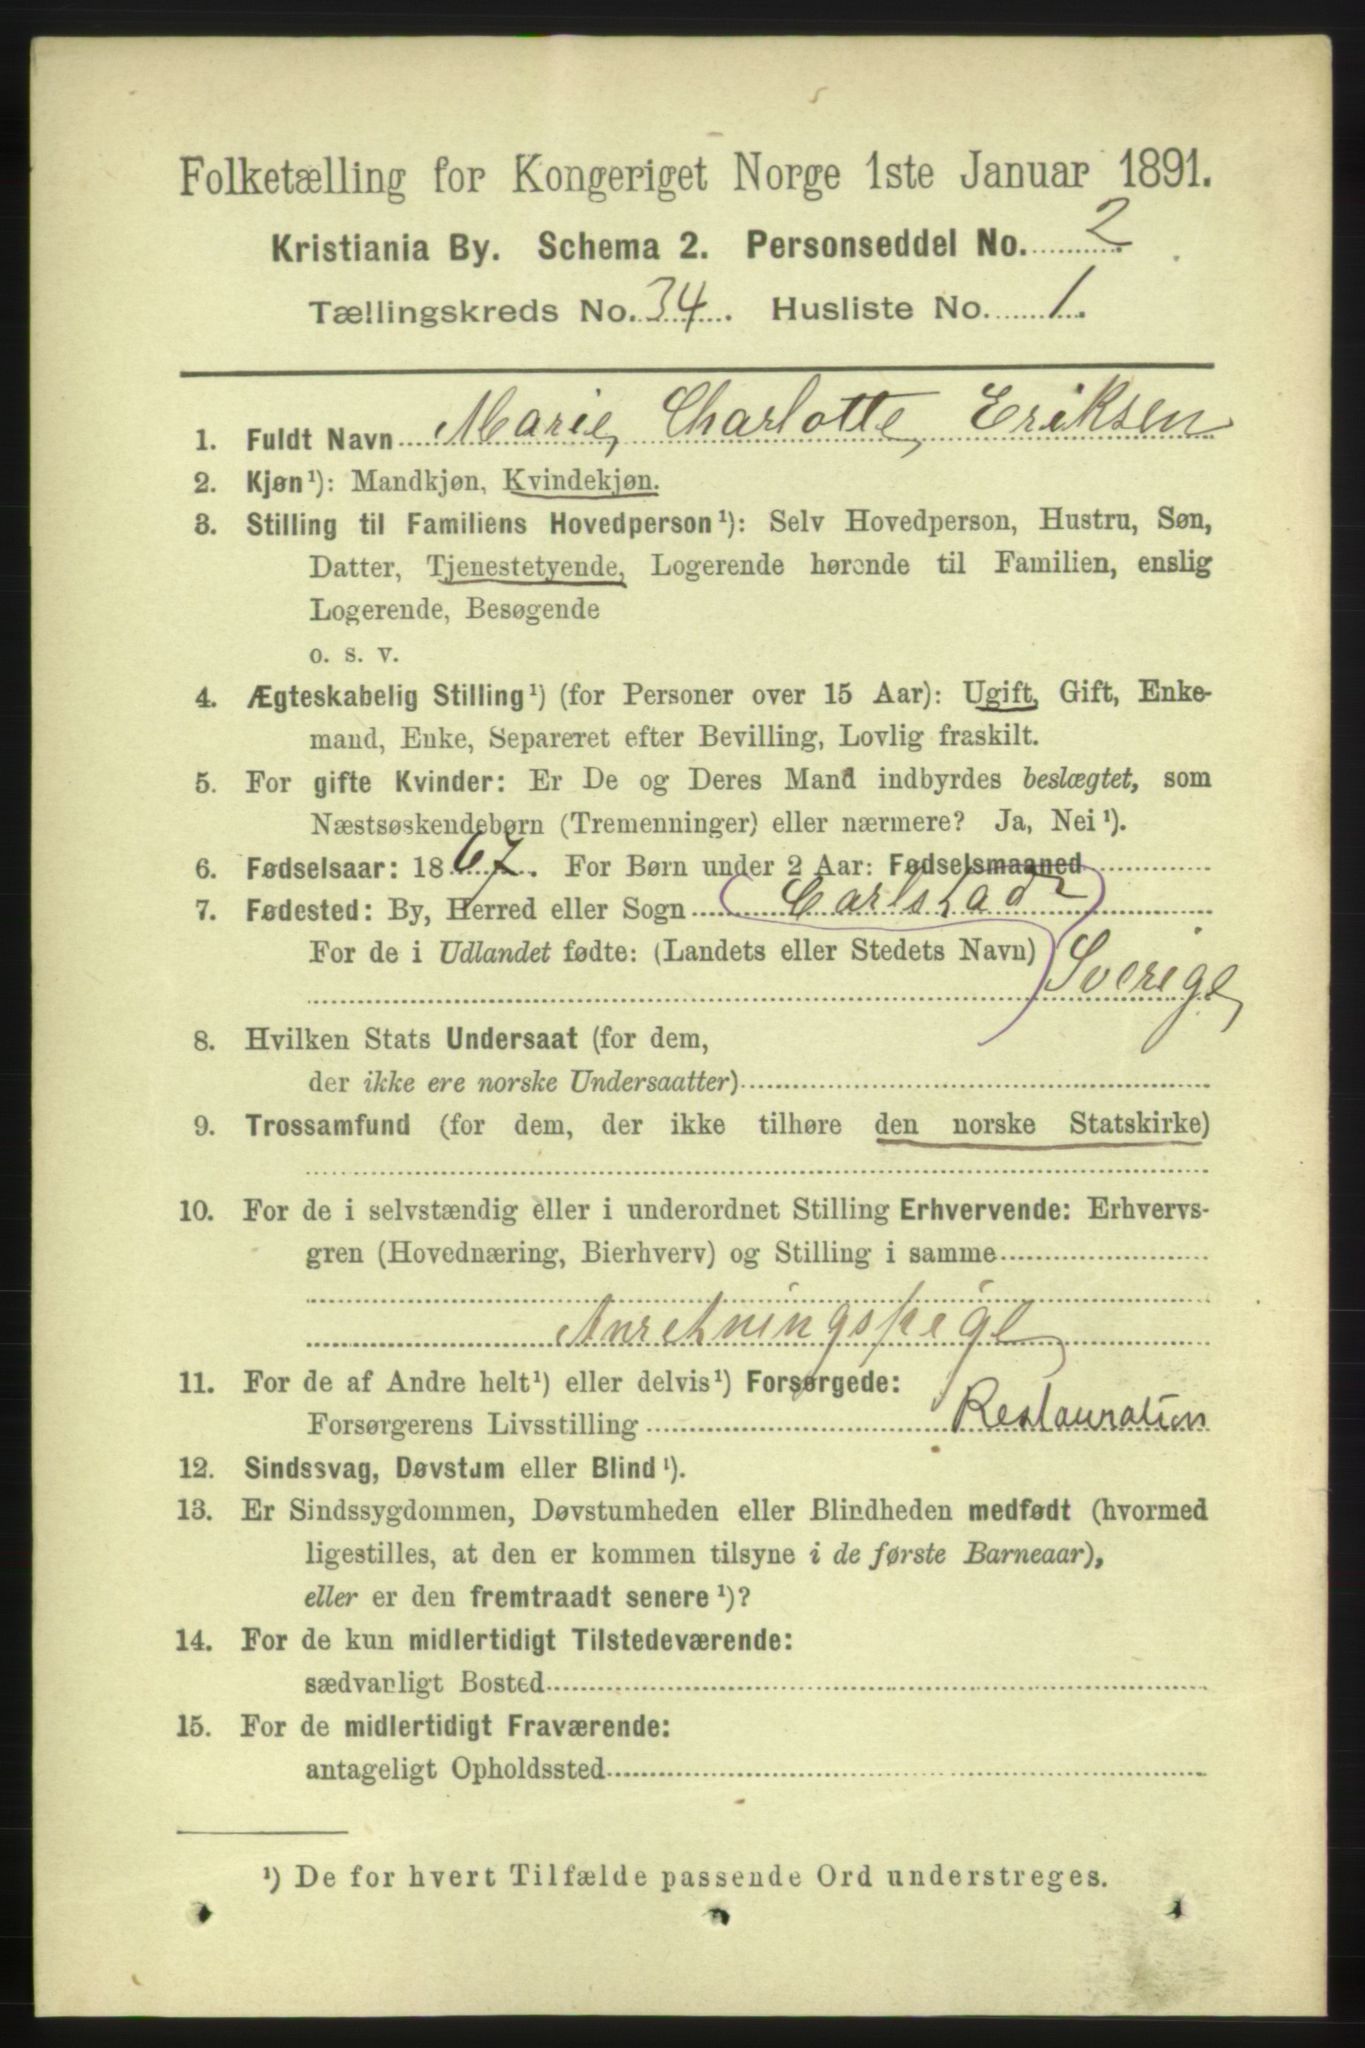 Folketælling for Kongeriget Norge 1ste Januar 1891.
Kristiania By. Schema 2. Personseddel No. 2
Tællingskreds No. 34. Husliste No. 1.
1. Fuldt Navn Marie, Charlotte, Eriksen
2. Kjøn¹): Mandkjøn, Kvindekjøn.
3. Stilling til Familiens Hovedperson¹): Selv Hovedperson, Hustru, Søn,
Datter, Tjenestetyende, Logerende hørende til Familien, enslig
Logerende, Besøgende
o. s. v.
4. Ægteskabelig Stilling¹) (for Personer over 15 Aar): Ugift, Gift, Enke-
mand, Enke, Separeret efter Bevilling, Lovlig fraskilt.
5. For gifte Kvinder: Er De og Deres Mand indbyrdes beslægtet, som
Næstsøskendebørn (Tremenninger) eller nærmere? Ja, Nei¹).
6. Fødselsaar: 1867. For Børn under 2 Aar: Fødselsmaaned
7. Fødested: By, Herred eller Sogn Carlstad
For de i Udlandet fødte: (Landets eller Stedets Navn) Sverige,
8. Hvilken Stats Undersaat (for dem,
der ikke ere norske Undersaatter)
9. Trossamfund (for dem, der ikke tilhøre den norske Statskirke)
10. For de i selvstændig eller i underordnet Stilling Erhvervende: Erhvervs-
gren (Hovednæring, Bierhverv) og Stilling i samme
Anretningspige
11. For de af Andre helt¹) eller delvis¹) Forsørgede:
Forsørgerens Livsstilling Restauration
12. Sindssvag, Døvstum eller Blind¹).
13. Er Sindssygdommen, Døvstumheden eller Blindheden medfødt (hvormed
ligestilles, at den er kommen tilsyne i de første Barneaar),
eller er den fremtraadt senere¹)?
14. For de kun midlertidigt Tilstedeværende:
sædvanligt Bosted
15. For de midlertidigt Fraværende:
antageligt Opholdssted
¹) De for hvert Tilfælde passende Ord understreges.